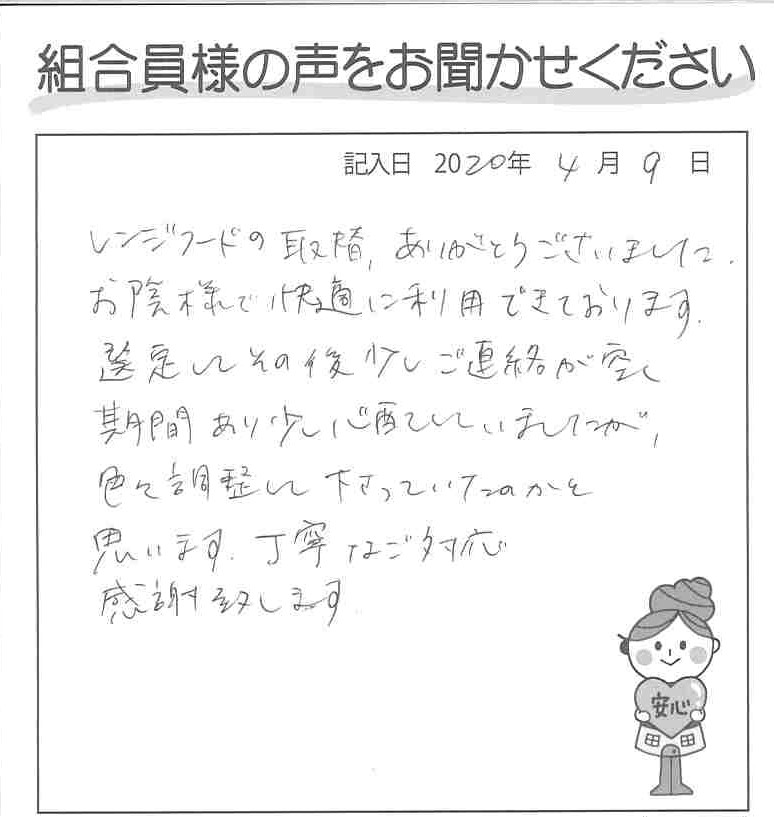 組合員様の声をお聞かせください
記入日 2020年 4月 9日
レンジフードの取替, ありがとうございました.
お陰様で快適に利用できております.
選定しその後少しご連絡が空く
期間あり少し心配していましたが,
色々調整して下さっていたのかと
思います. 丁寧なご対応
感謝致します
安心